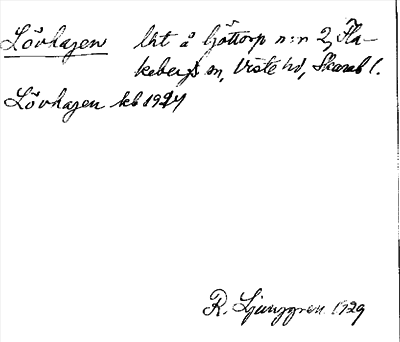 Lövhagen lht å Göttorp n:r 2, Fla-
kebergs sn, Viste hd, Skarab l.
Lövhagen kb 1927
R. Ljunggren 1929